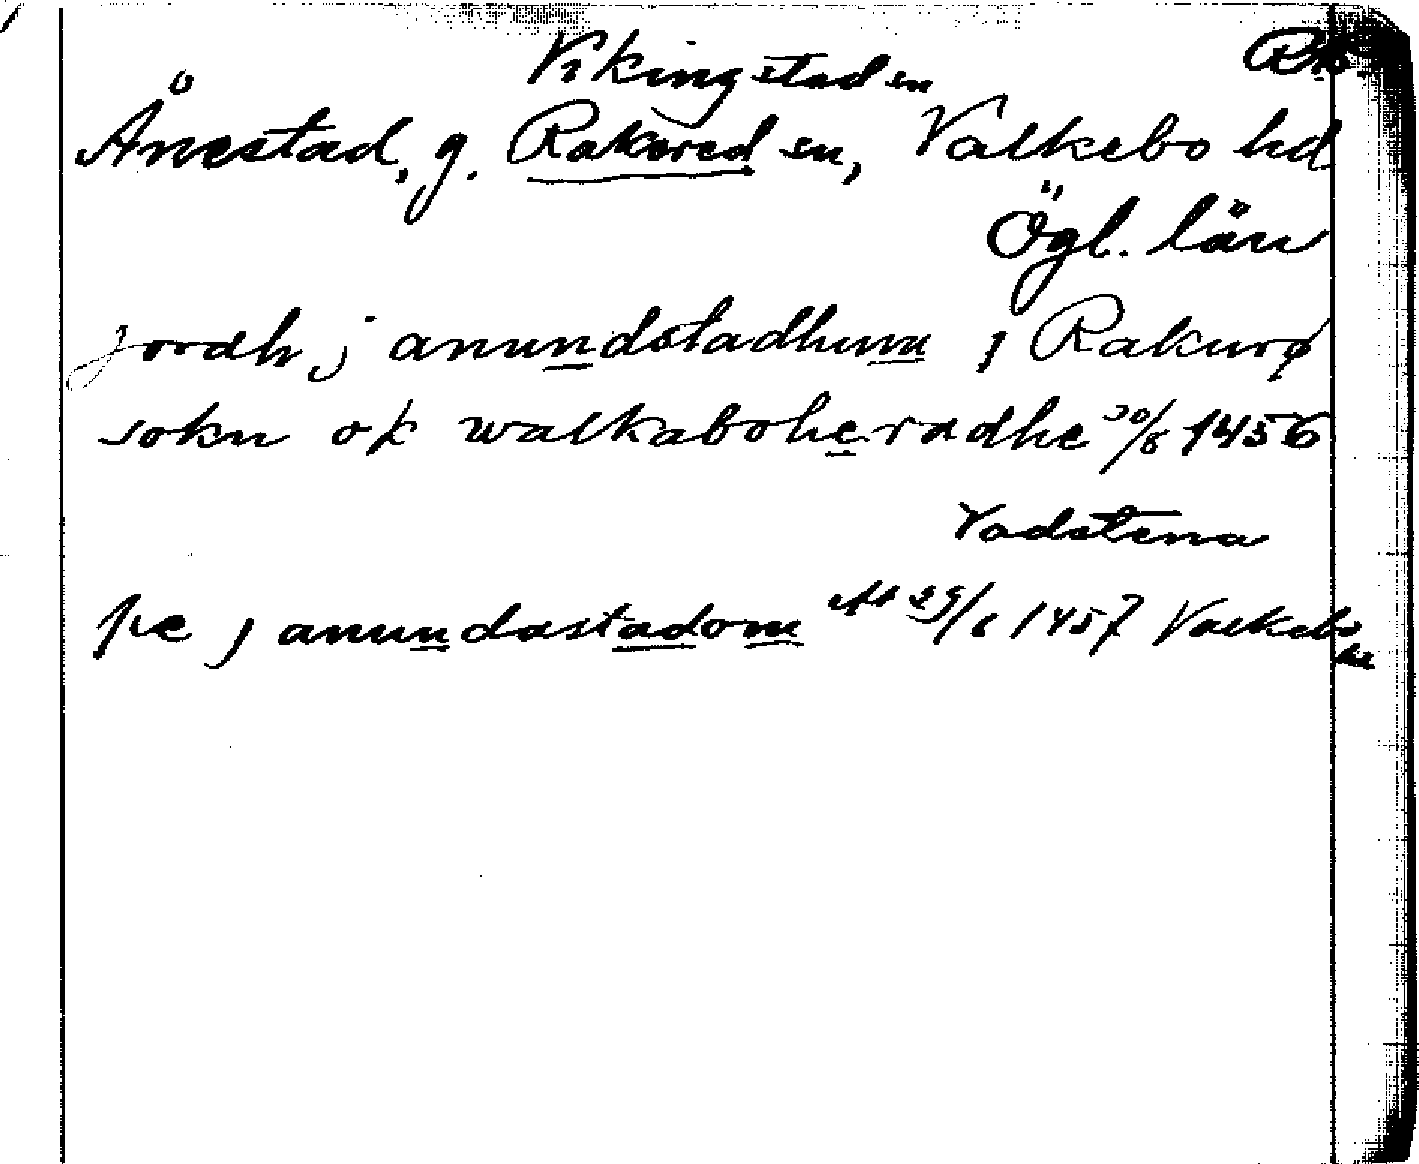 Vikingstad sn
RAp
Ånestad, g. Rakered sn, Valkebo hd
Ögl. län
jordh j anundstadhum j Rakurø
sokn ok walkaboheradhe 30/8 1456
Vadstena
pe j anundastadom aft 29/6 1457 Valkebo
hd